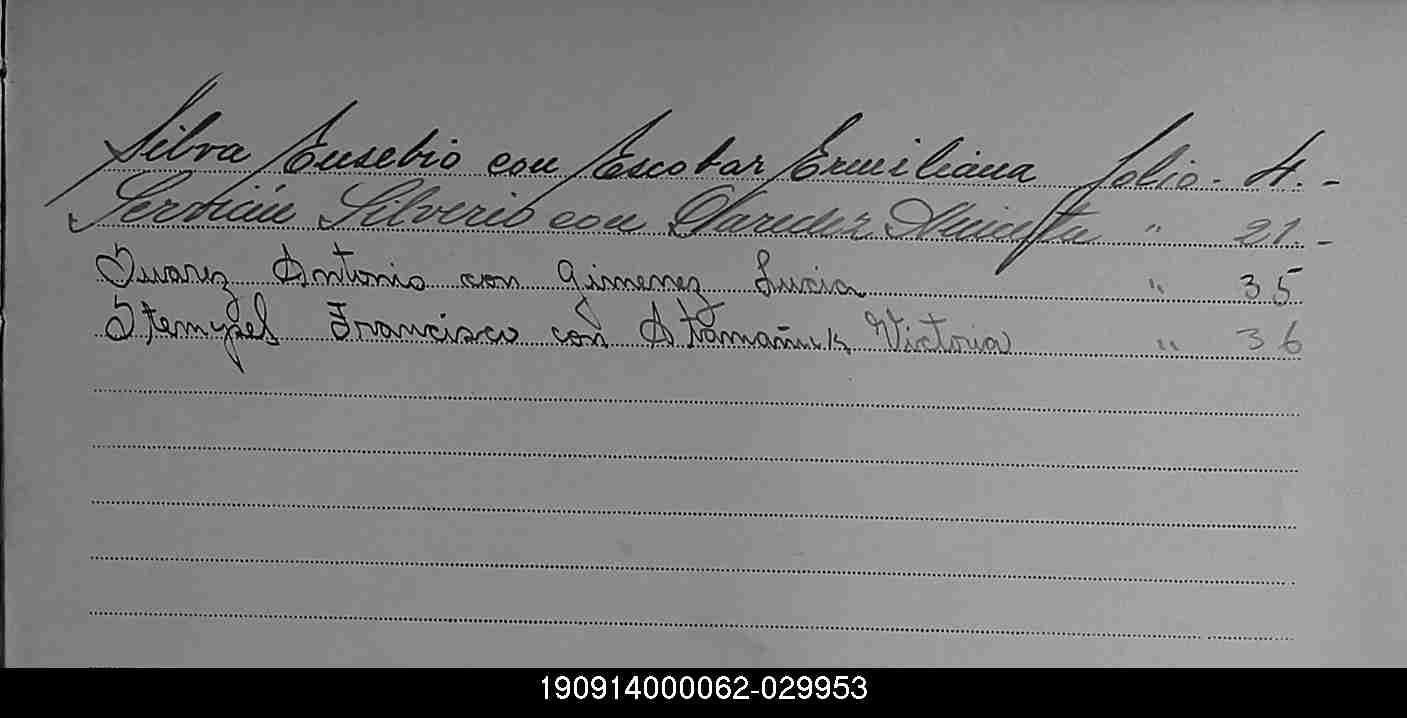 Silva Eusebio con Escobar Ermiliana folio. 4.-
Servián Silverio con Paredez Aniceta " 21.-
Suarez Antonio con Gimenez Lucia " 35
Stempel Francisco con Atamañuk Victoria " 36
190914000062-029953